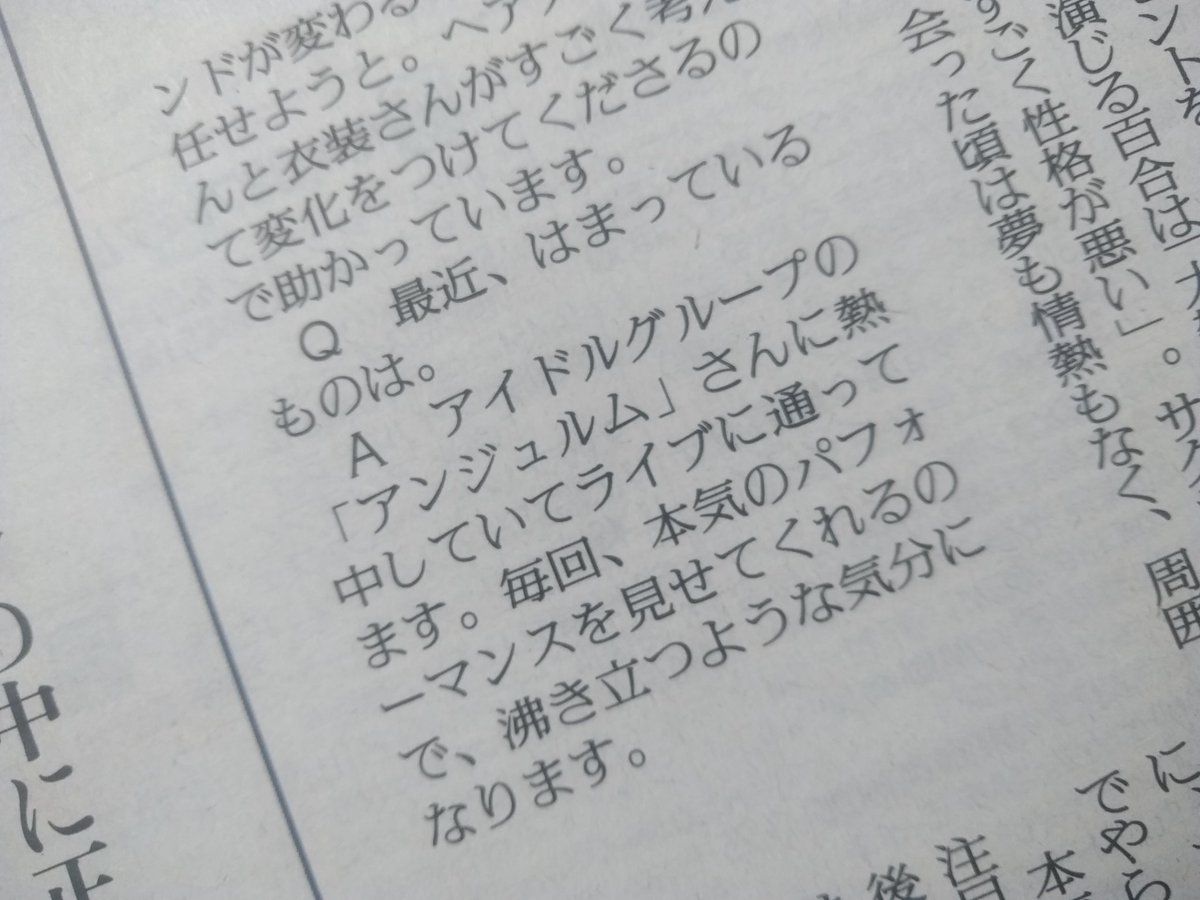 ンドが変わる
任せようと。ヘア
んと衣装さんがすごく考え
て変化をつけてくださるの
で助かっています。
Q 最近、はまっている
ものは。
A アイドルグループの
「アンジュルム」さんに熱
中していてライブに通って
ます。毎回、本気のパフォ
ーマンスを見せてくれるの
で、沸き立つような気分に
なります。
ントを
演じる百合は「
すごく性格が悪い」。サ
会った頃は夢も情熱もなく、周囲
に
でやら
本
注
後
の中に正